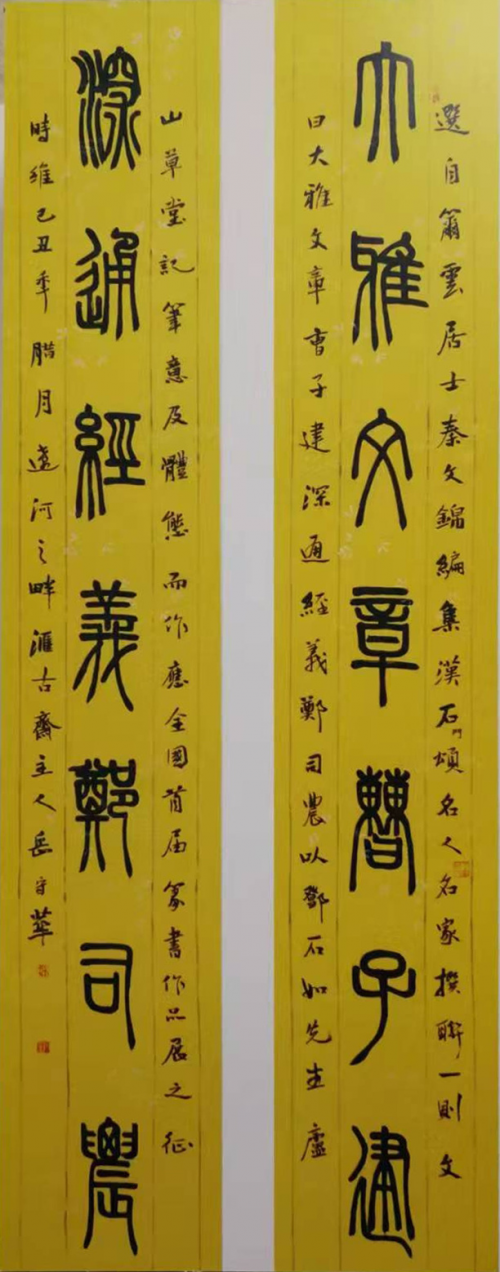 選自簫雲居士秦文錦編集漢石門頌名人名家撰聯一則文
大雅文章曹子建
曰大雅文章曹子建深通經義鄭司農以鄧石如先生廬
山草堂記筆意及體態而作應全國首届篆書作品展之征
深通經義鄭司農
時維己丑年腊月遼河之畔滙古齋主人岳守華